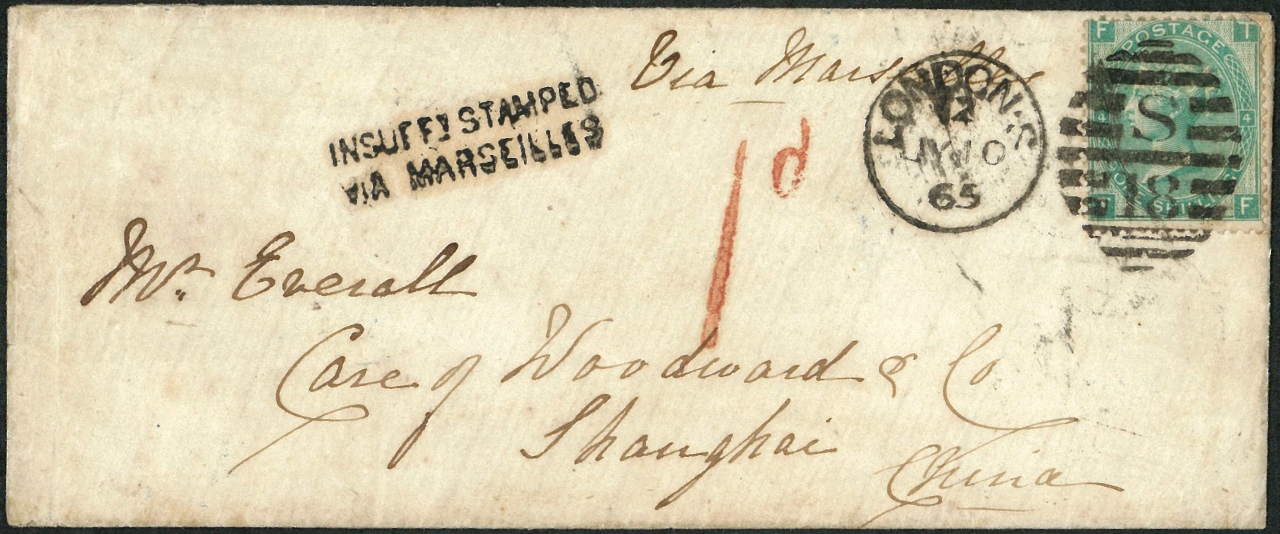 Via Marseilles
INSUFFY STAMPED
VIA MARSEILLES
1d
LONDON·S
JY 10
65
F POSTAGE T
S
18
4 4
SHILLING F
Mr. Everall
Care of Woodward & Co
Shanghai
China